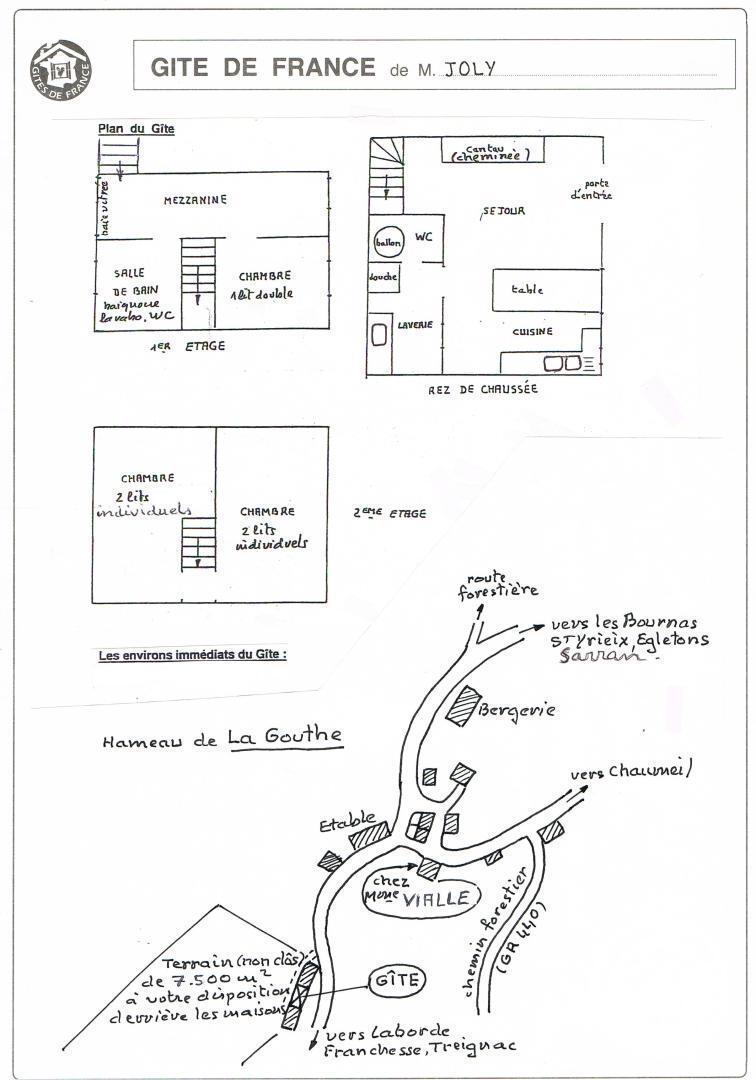 GITES DE FRANCE
GITE DE FRANCE de M. JOLY
Plan du Gîte
baie vitrée
MEZZANINE
SALLE
DE BAIN
baignoire
lavabo, WC
CHAMBRE
1 lit double
1ER ETAGE
Cantou
(cheminée)
porte
d'entrée
SEJOUR
ballon
WC
douche
table
LAVERIE
CUISINE
REZ DE CHAUSSÉE
CHAMBRE
2 lits
individuels
CHAMBRE
2 lits
individuels
2EME ETAGE
Les environs immédiats du Gîte :
route
forestière
vers les Bournas
STyrieix, Egletons
Sarran.
Bergerie
Hameau de La Gouthe
vers Chaumeil
Etable
chez
Mme VIALLE
chemin forestier
(GR 440)
Terrain (non clôs)
de 7.500 m²
à votre disposition
derrière les maisons
GÎTE
vers Laborde
Franchesse, Treignac